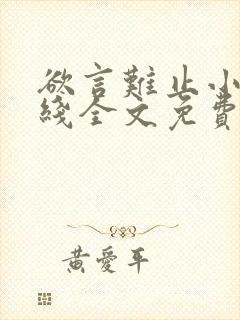 欲言難止小
綫全文免費
黃愛平